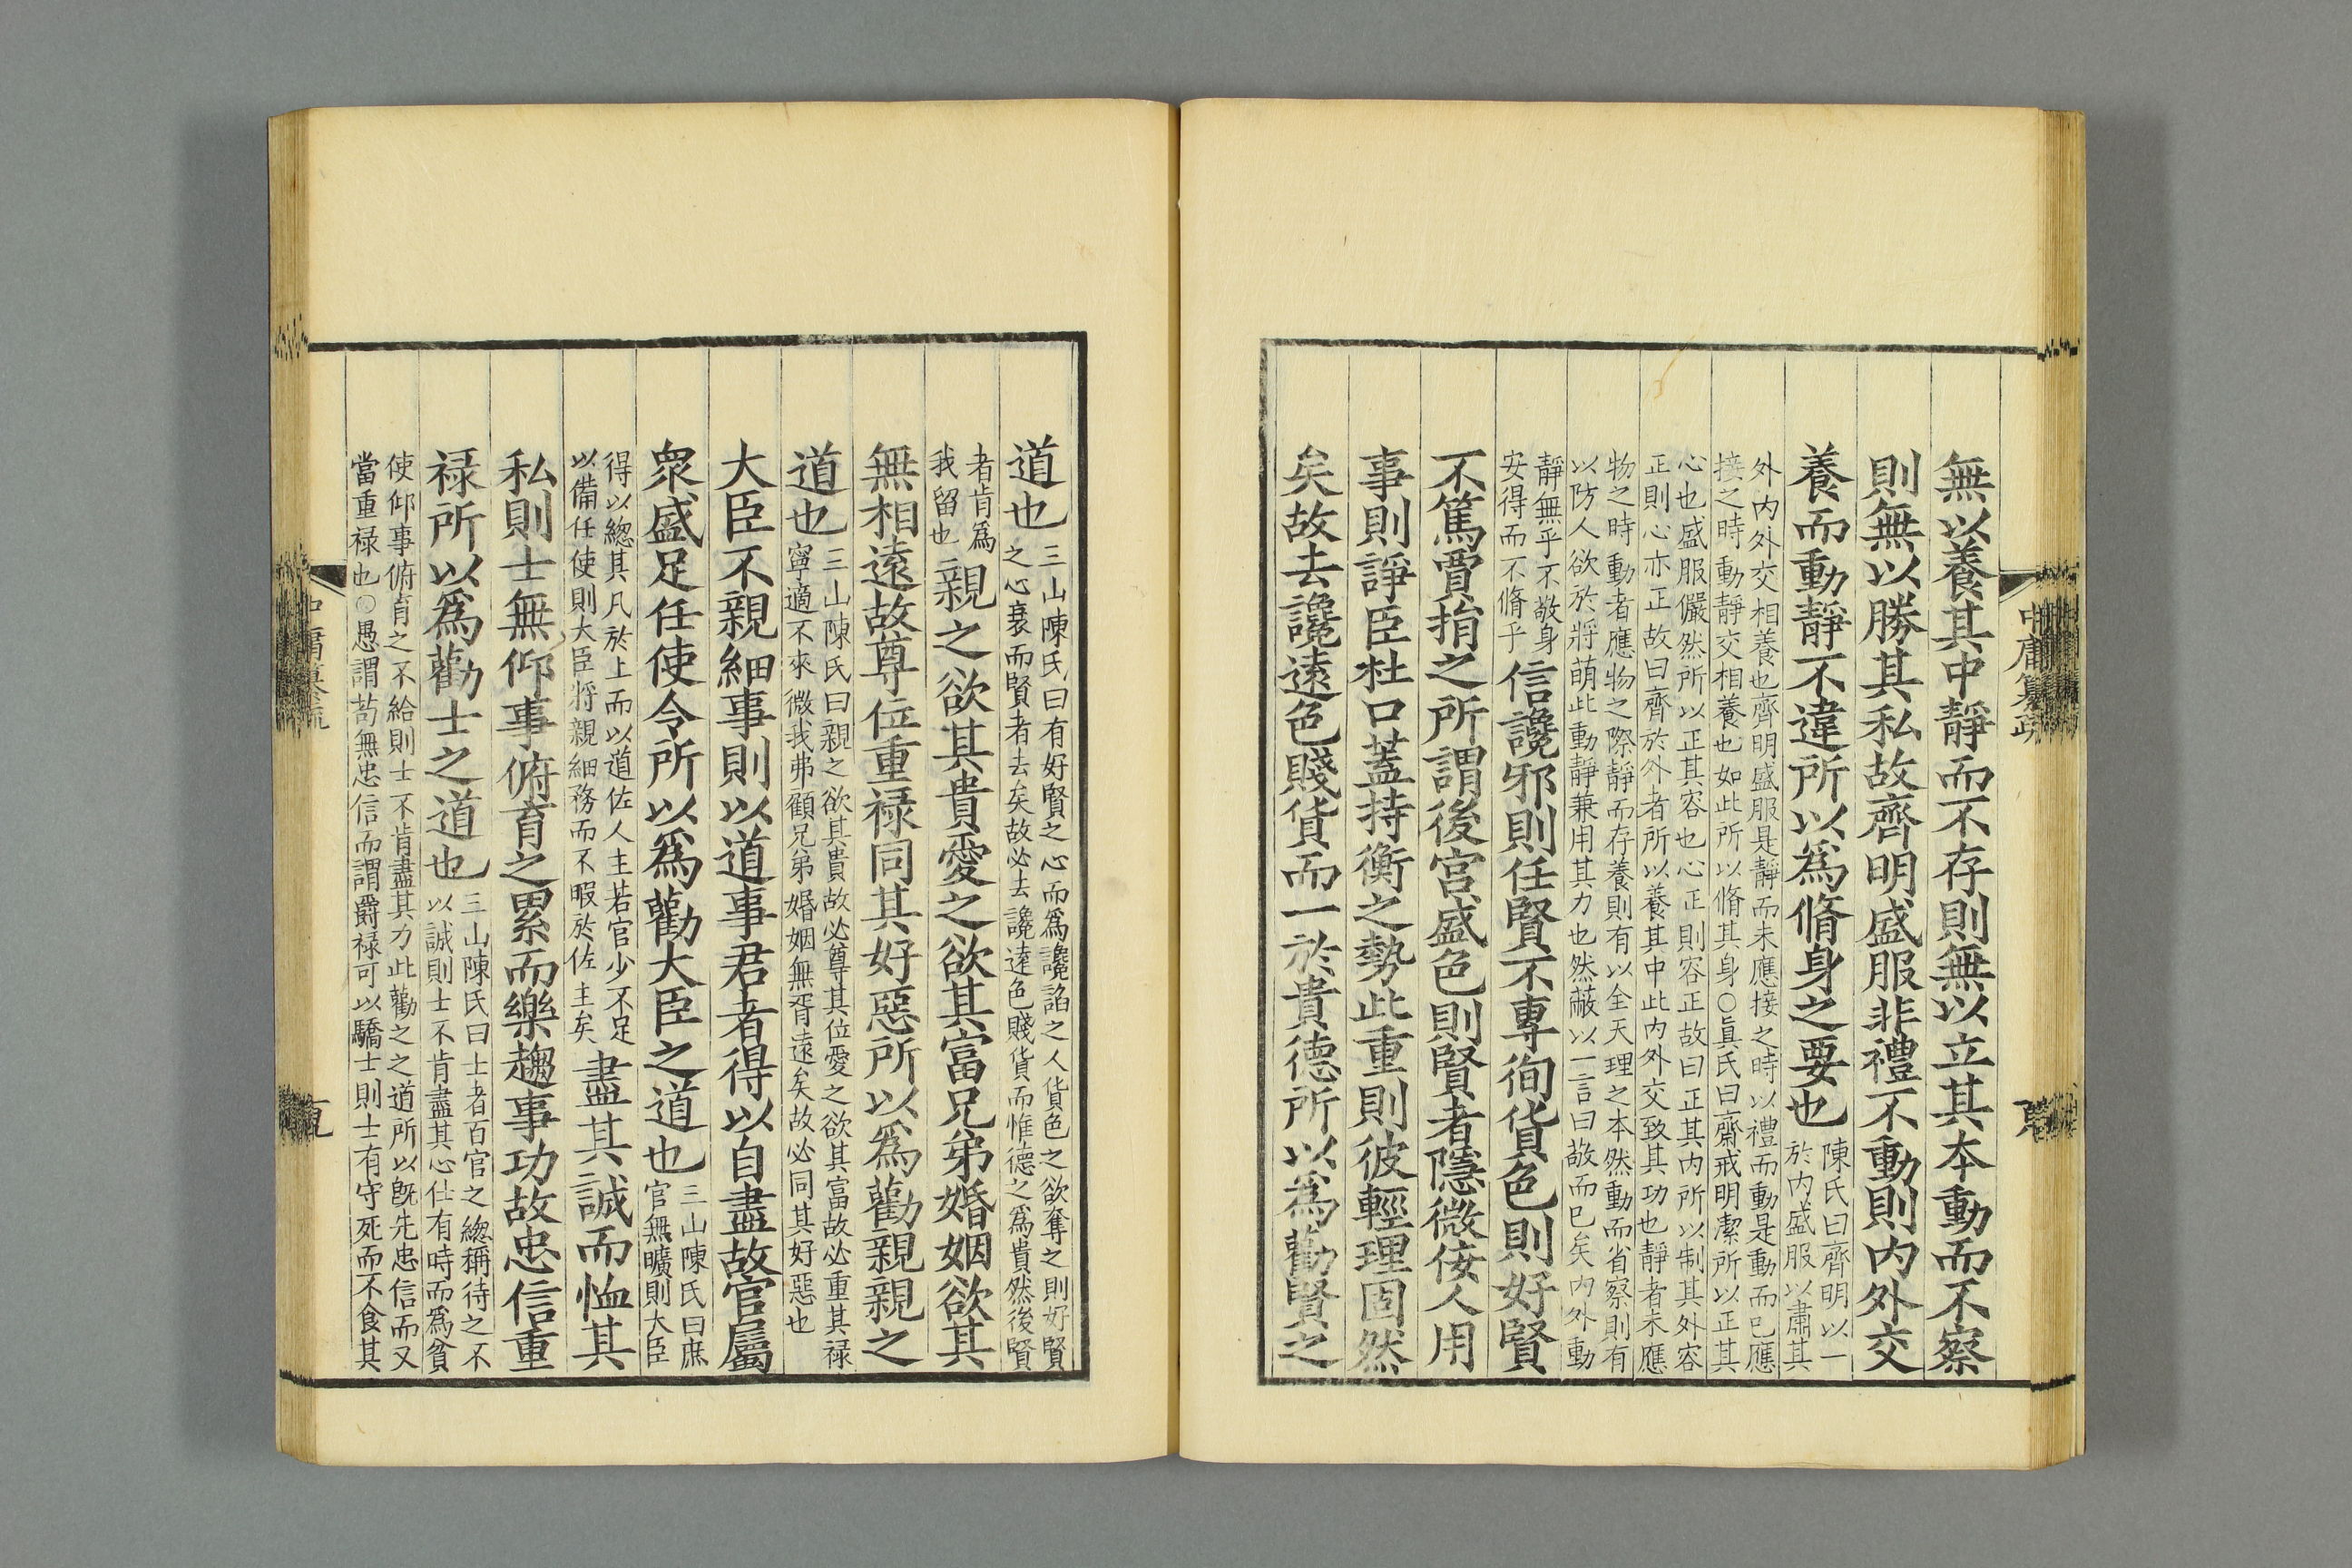 無以養其中靜而不存則無以立其本動而不察
則無以勝其私故齊明盛服非禮不動則内外交
養而動靜不違所以爲脩身之要也
陳氏曰齊明以一
於内盛服以肅其
外内外交相養也齊明盛服是靜而未應接之時以禮而動是動而已應
接之時動靜交相養也如此所以脩其身○眞氏曰齋戒明潔所以正其
心也盛服儼然所以正其容也心正則容正故曰正其内所以制其外容
正則心亦正故曰齊於外者所以養其中此内外交致其功也靜者未應
物之時動者應物之際靜而存養則有以全天理之本然動而省察則有
以防人欲於將萌此動靜兼用其力也然蔽以一言曰敬而已矣内外動
靜無乎不敬身
安得而不脩乎
信讒邪則任賢不專徇貨色則好賢
不篤賈捐之所謂後宮盛色則賢者隱微佞人用
事則諍臣杜口蓋持衡之勢此重則彼輕理固然
矣故去讒遠色賤貨而一於貴德所以爲勸賢之
中庸纂疏
道也
三山陳氏曰有好賢之心而爲讒諂之人貨色之欲奪之則好賢
之心衰而賢者去矣故必去讒遠色賤貨而惟德之爲貴然後賢
者肯爲
我留也
親之欲其貴愛之欲其富兄弟婚姻欲其
無相遠故尊位重禄同其好惡所以爲勸親親之
道也
三山陳氏曰親之欲其貴故必尊其位愛之欲其富故必重其禄
寧適不來微我弗顧兄弟婚姻無胥遠矣故必同其好惡也
大臣不親細事則以道事君者得以自盡故官屬
衆盛足任使令所以爲勸大臣之道也
三山陳氏曰庶
官無曠則大臣
得以緫其凡於上而以道佐人主若官少不足
以備任使則大臣将親細務而不暇於佐主矣
盡其誠而恤其
私則士無仰事俯育之累而樂趨事功故忠信重
禄所以爲勸士之道也
三山陳氏曰士者百官之緫稱待之不
以誠則士不肯盡其心仕有時而爲貧
使仰事俯育之不給則士不肯盡其力此勸之之道所以旣先忠信而又
當重禄也○愚謂苟無忠信而謂爵禄可以驕士則士有守死而不食其